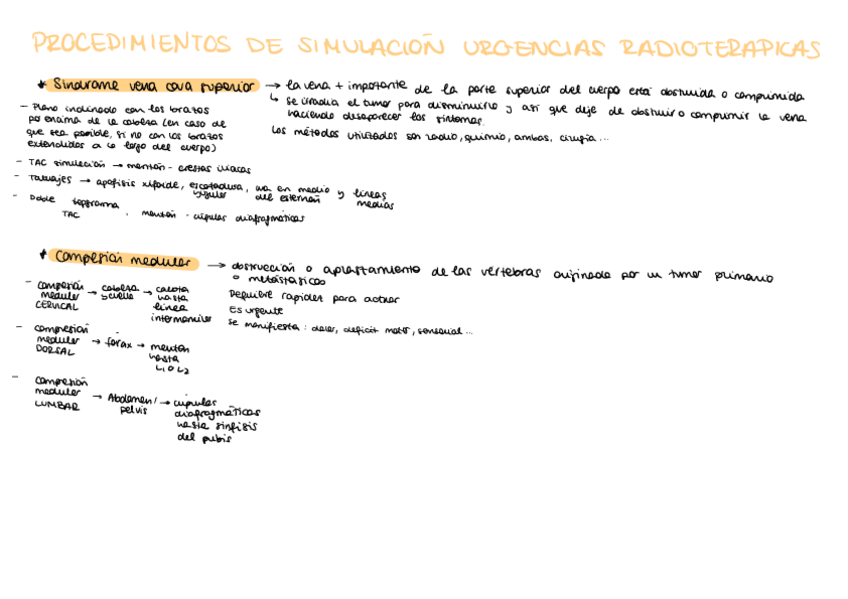 PROCEDIMIENTOS DE SIMULACIÓN URGENCIAS RADIOTERAPICAS
* Sindrome vena cava superior → la vena + importante de la parte superior del cuerpo está obstruida o comprimida
↳ se irradia el tumor para disminuirlo y así que deje de obstruir o comprimir la vena
haciendo desaparecer los síntomas.
Los métodos utilizados son radio, quimio, ambas, cirugía...
- Plano inclinado con los brazos
por encima de la cabeza (en caso de
que sea posible, si no con los brazos
extendidos a lo largo del cuerpo)
- TAC simulación → mentón - crestas iliacas
- Tatuajes → apófisis xifoide, escotadura yugular, una en medio del esternón y líneas medias
- Doble topograma
TAC, mentón - cúpulas diafragmáticas
* Compresión medular → obstrucción o aplastamiento de las vertebras originada por un tumor primario
o metástasico
Requiere rapidez para actuar
Es urgente
Se manifiesta: dolor, deficit motor, sensorial...
- compresión
medular
CERVICAL
→ cabeza
y cuello
→ calota
hasta
línea
intermamilar
- compresión
medular
DORSAL
→ tórax → mentón
hasta
L1 o L2
- compresión
medular
LUMBAR
→ Abdomen/
pelvis
→ cúpulas
diafragmáticas
hasta sínfisis
del pubis